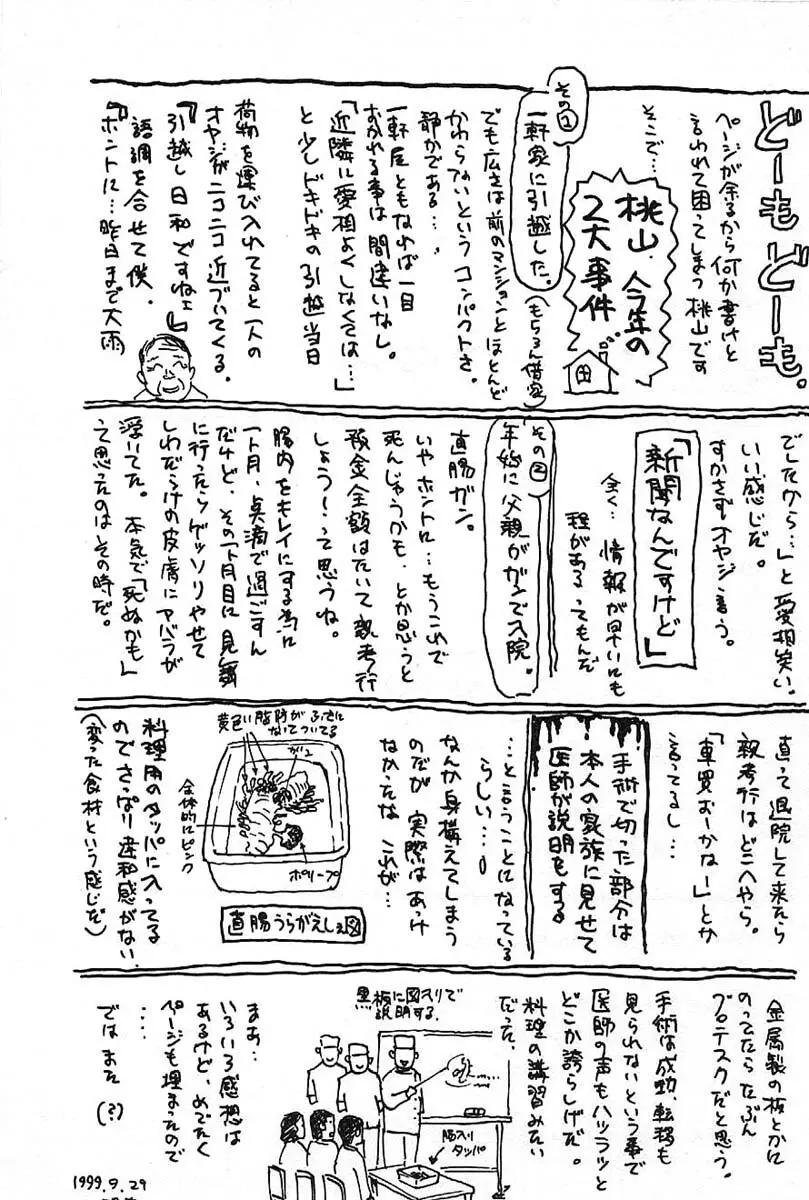 どーもどーも。
ページが余るから何か書けと
言われて困ってしまう桃山です
そこで…
桃山.今年の
2大事件
その1
一軒家に引越した。
(もちろん借家)
でも広さは前のマンションとほとんど
かわらないというコンパクトさ。
静かである…
一軒屋ともなれば一目
おかれる事は間違いなし。
「近隣に愛相よくしなくては…」
と少しドキドキの引越当日
荷物を運び入れてると一人の
オヤジがニコニコ近づいてくる。
『引越し日和ですねェ』
語調を合せて僕、
『ホントに…昨日まで大雨
でしたから…」と愛相笑い。
いい感じだ。
すかさずオヤジ言う。
「新聞なんですけど」
全く…情報が早いにも
程があるってもんだ
その2
年始に父親がガンで入院。
直腸ガン。
いやホントに…もうこれで
死んじゃうかも、とか思うと
預金全額はたいて親孝行
しょう!って思うね。
腸内をキレイにする為に
一ヶ月、点滴で過ごすん
だけど、その1ヶ月目に見舞
に行ったらゲッソリやせて
しわだらけの皮膚にアバラが
浮いてた。本気で「死ぬかも」
って思ったのはその時だ。
直って退院して来たら
親孝行はどこへやら。
「車買おーかなー」とか
言ってるし…
手術で切った部分は
本人の家族に見せて
医師が説明をする
…と言うことになっている
らしい…。
なんか身構えてしまう
のだが実際はあっけ
なかったな これが…
黄色い脂肪がふさに
なってついてる
ガン
全体的にピンク
ポリープ
直腸うらがえしェ図
料理用のタッパに入ってる
のでさっぱり違和感がない
(変った食材という感じだ)
金属製の板とかに
のってたらたぶん
グロテスクだと思う。
手術は成功、転移も
見られないという事で
医師の声もハツラツと
どこか誇らしげだ。
料理の講習みたい
だった。
黒板に図入りで
説明する.
腸入り
タッパ
まぁ…
いろいろ感想は
あるけど、めでたく
ページも埋まったので
…
ではまた(?)
1999.9.29